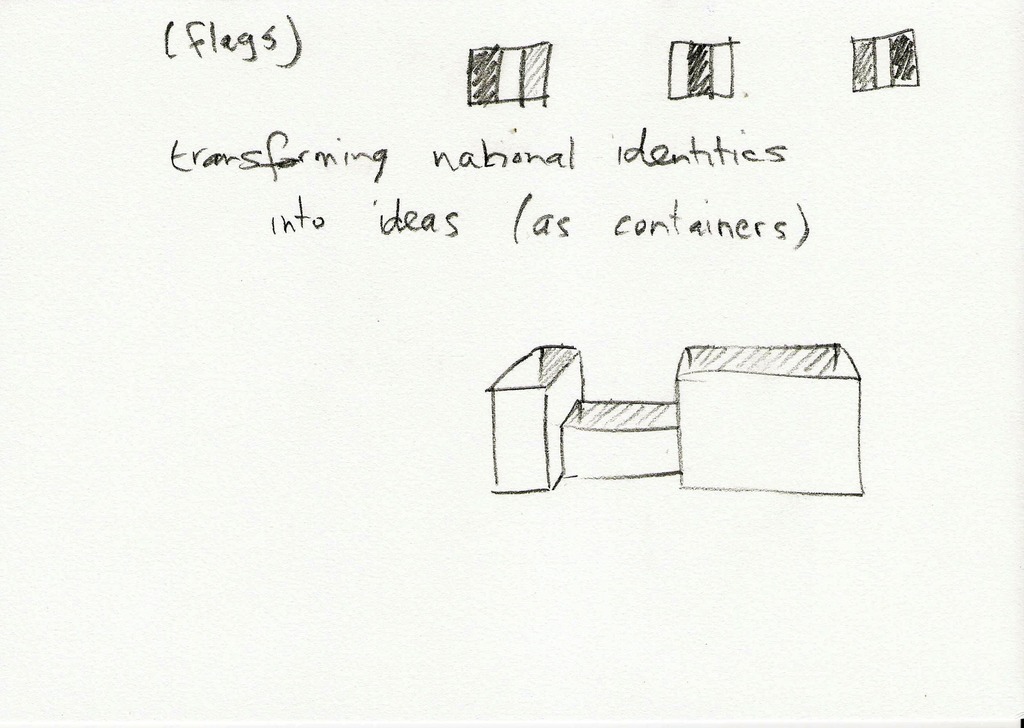 (flags)
transforming national identities
into ideas (as containers)